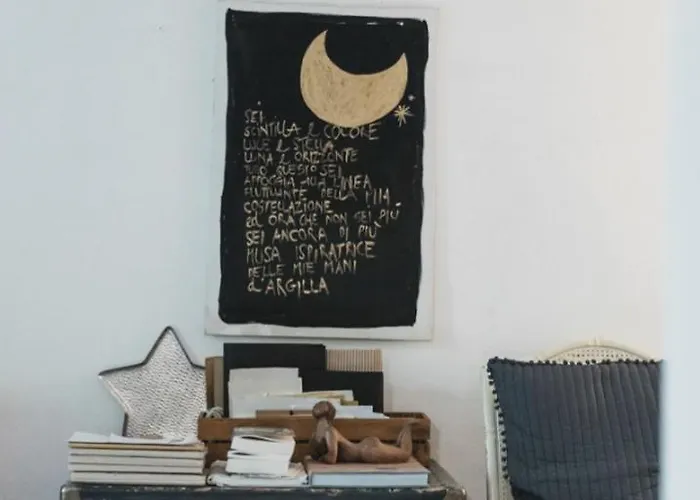 SEI
SCINTILLA E COLORE
LUCE E STELLA
LUNA E ORIZZONTE
TUTTO QUESTO SEI
APPOGGIATA ALLA LINEA
FLUTTUANTE DELLA MIA
COSTELLAZIONE
ed ORA CHE NON SEI PIÙ
SEI ANCORA DI PIÙ
MUSA ISPIRATRICE
DELLE MIE MANI
d'ARGILLA